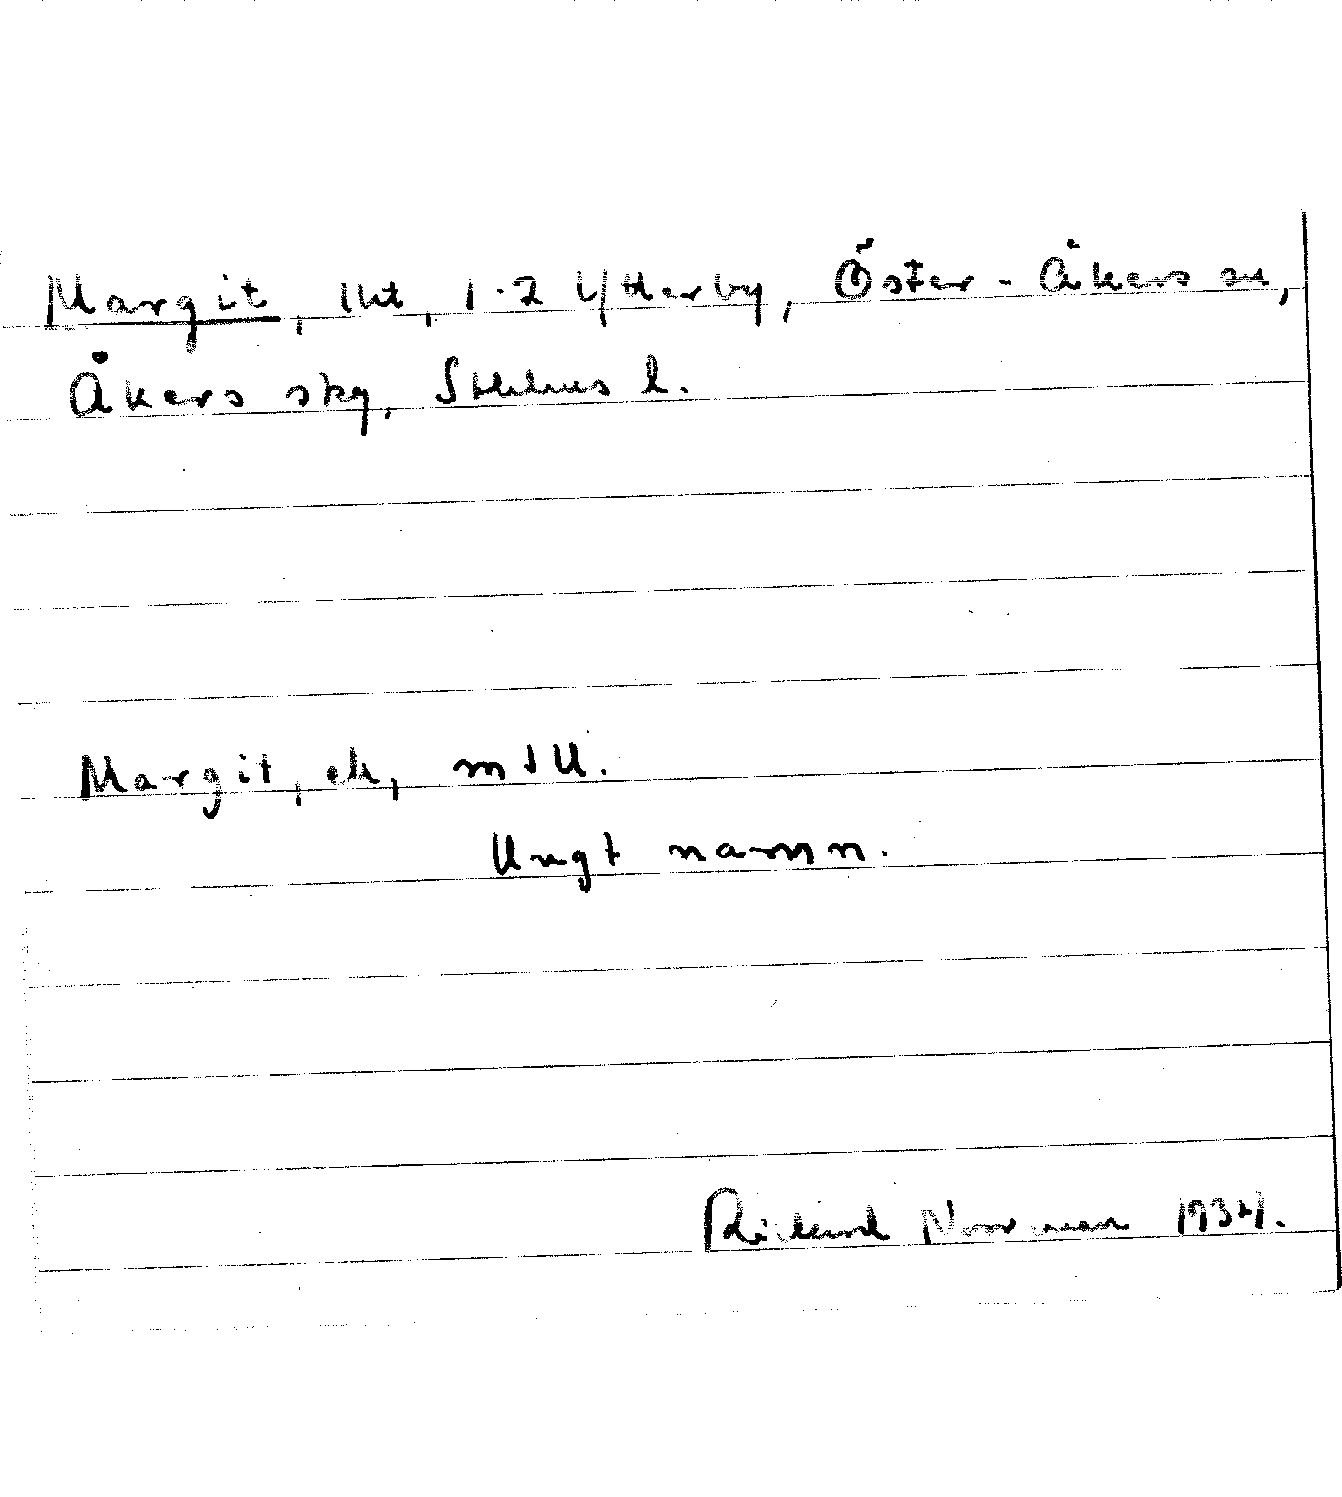 Margit, lht, 1.2 Ytterby, Öster-Åkers sn,
Åkers skg, Sthlms l.
Margit, ek, mtU.
Ungt namn.
Rickard Norrman 1934.